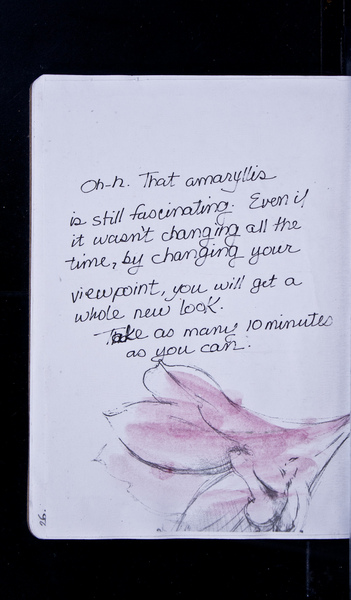 Oh-h. That amaryllis
is still fascinating. Even if
it wasn't changing all the
time, by changing your
viewpoint, you will get a
whole new look.
Take as many 10 minutes
as you can.
26.